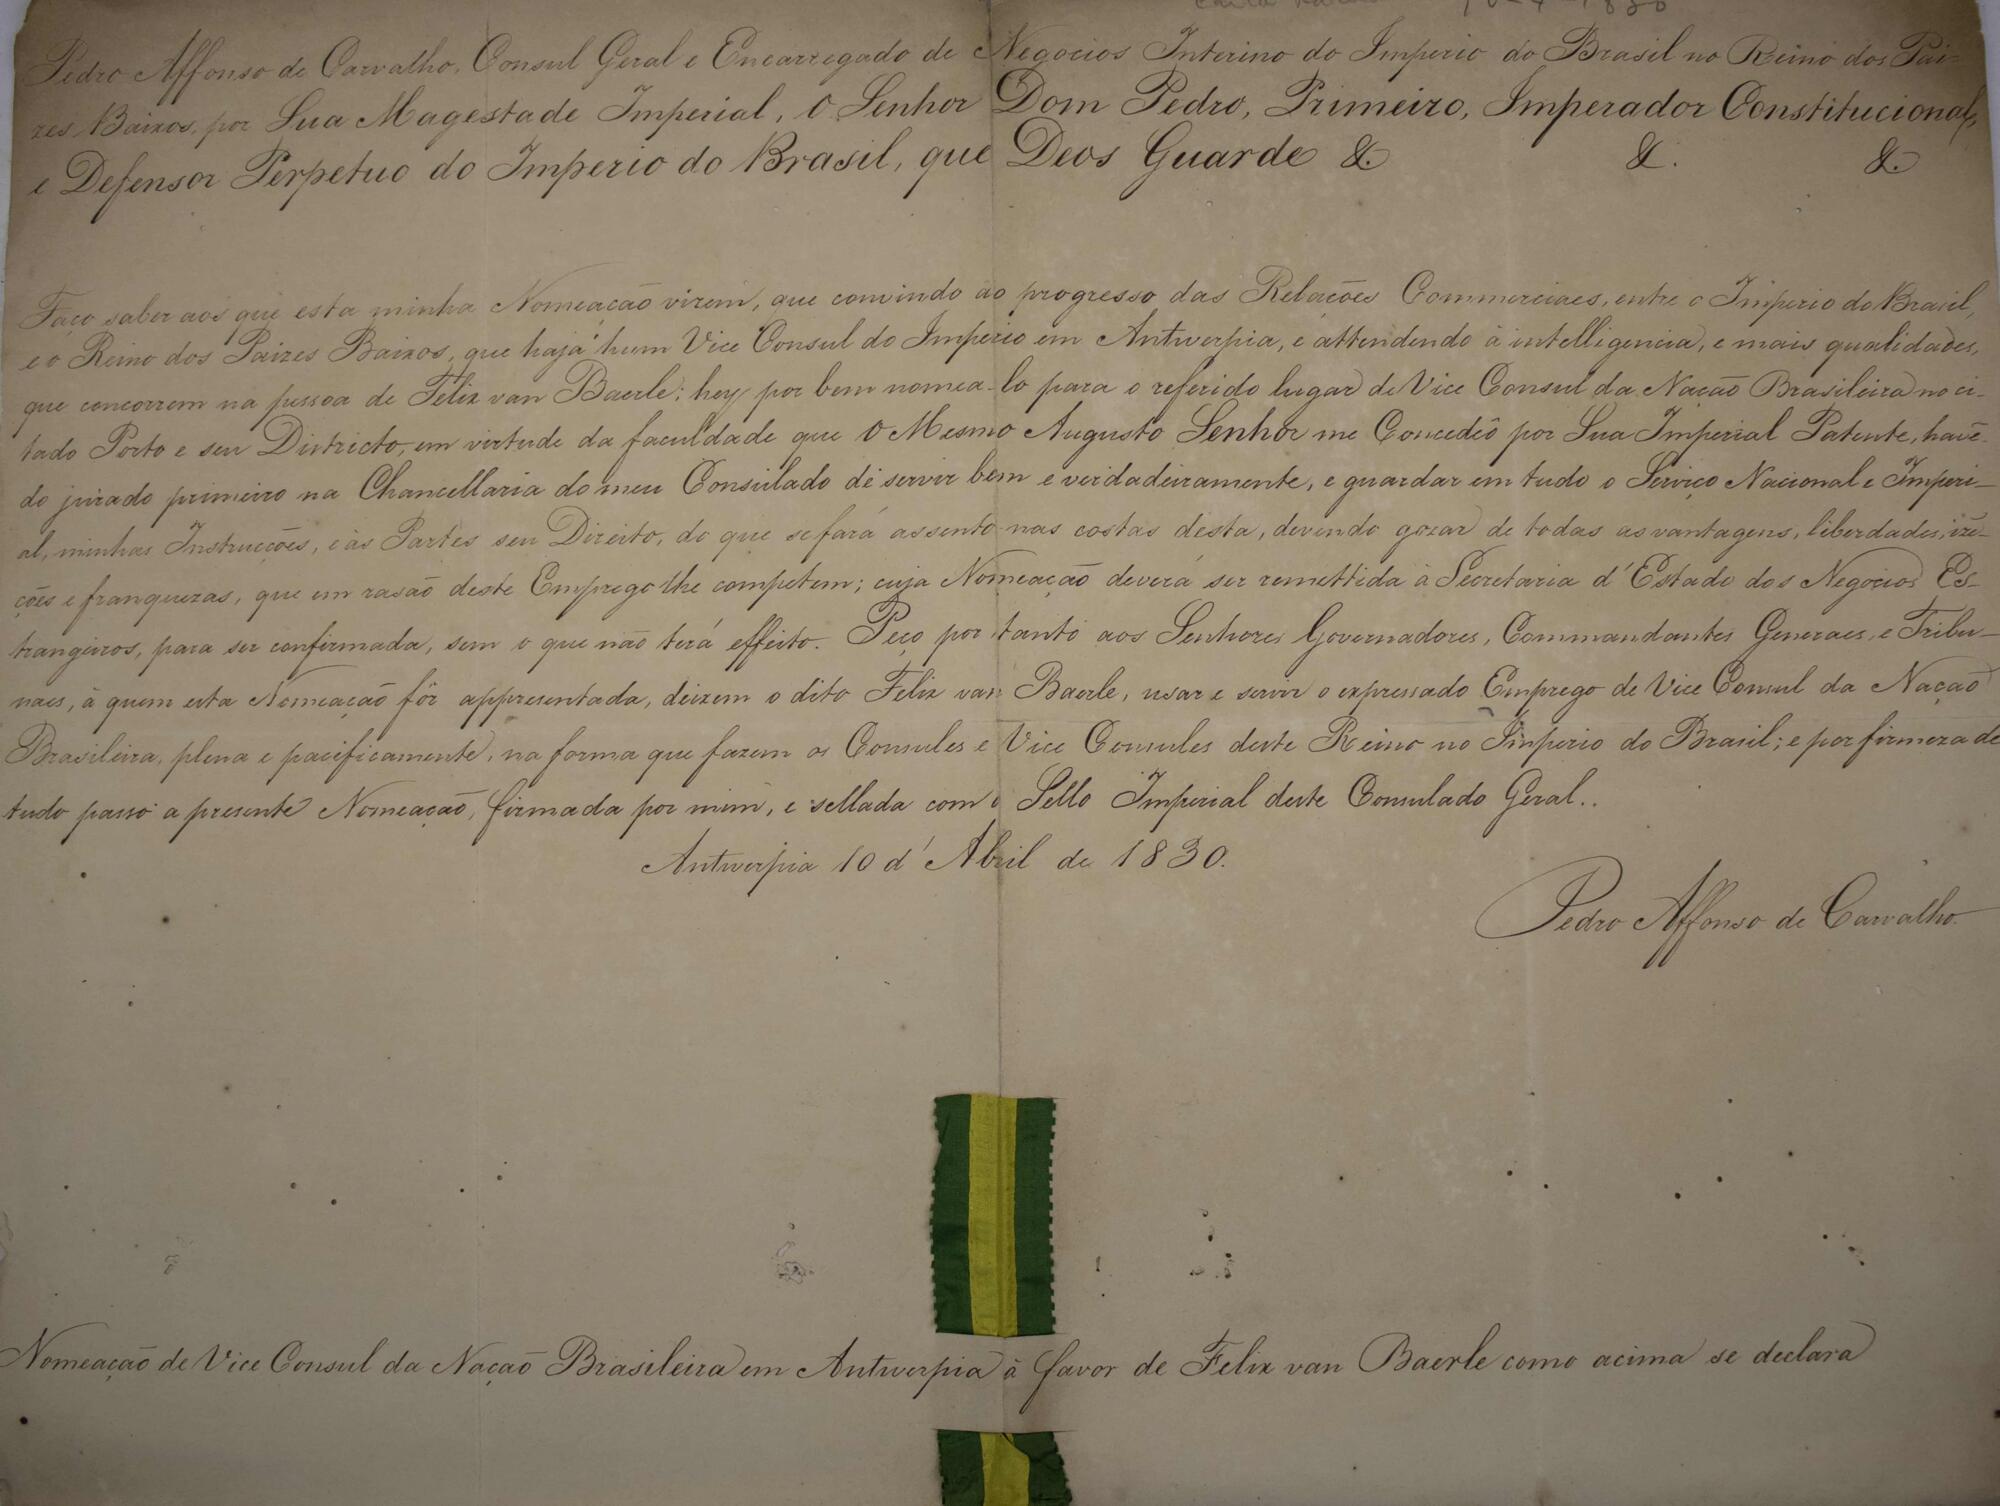 10-4-1830
Pedro Affonso de Carvalho, Consul Geral e Encarregado de Negocios Interino do Imperio do Brasil no Reino dos Pai-
zes Baixos, por Sua Magestade Imperial, O Senhor Dom Pedro, Primeiro, Imperador Constitucional,
e Defensor Perpetuo do Imperio do Brasil, que Deos Guarde &. &. &
Faço saber aos que esta minha Nomeação virem, que convindo ao progresso das Relações Commerciaes, entre o Imperio do Brasil,
e o Reino dos Paizes Baixos, que hajá hum Vice Consul do Imperio em Antwerpia, e attendendo à intelligencia, e mais qualidades,
que concorrem na pessoa de Felix van Baerle; hey por bem nomea-lo para o referido lugar de Vice Consul da Nação Brasileira no ci-
tado Porto e seu Districto, em virtude da faculdade que O Mesmo Augusto Senhor me Concedêo por Sua Imperial Patente, havē-
do jurado primeiro na Chancellaria do meu Consulado de servir bem e verdadeiramente, e guardar em tudo o Serviço Nacional e Imperi-
al, minhas Instrucções, e às Partes seu Direito, do que se fará assento nas costas desta, devendo gozar de todas as vantagens, liberdades, izē-
ções e franquezas, que em rasão deste Emprego lhe competem; cuja Nomeação deverá ser remettida à Secretaria d'Estado dos Negocios Es-
trangeiros, para ser confirmada, sem o que não terá effeito. Peço por tanto aos Senhores Governadores, Commandantes Generaes, e Tribu-
naes, à quem esta Nomeação fôr appresentada, deixem o dito Felix van Baerle, usar e servir o expressado Emprego de Vice Consul da Nação
Brasileira, plena e pacificamente, na forma que fazem os Consules e Vice Consules deste Reino no Imperio do Brasil; e por firmeza de
tudo passo a presente Nomeação, firmada por mim, e sellada com o Sello Imperial deste Consulado Geral..
Antwerpia 10 d'Abril de 1830.
Pedro Affonso de Carvalho
Nomeação de Vice Consul da Nação Brasileira em Antwerpia à favor de Felix van Baerle como acima se declara